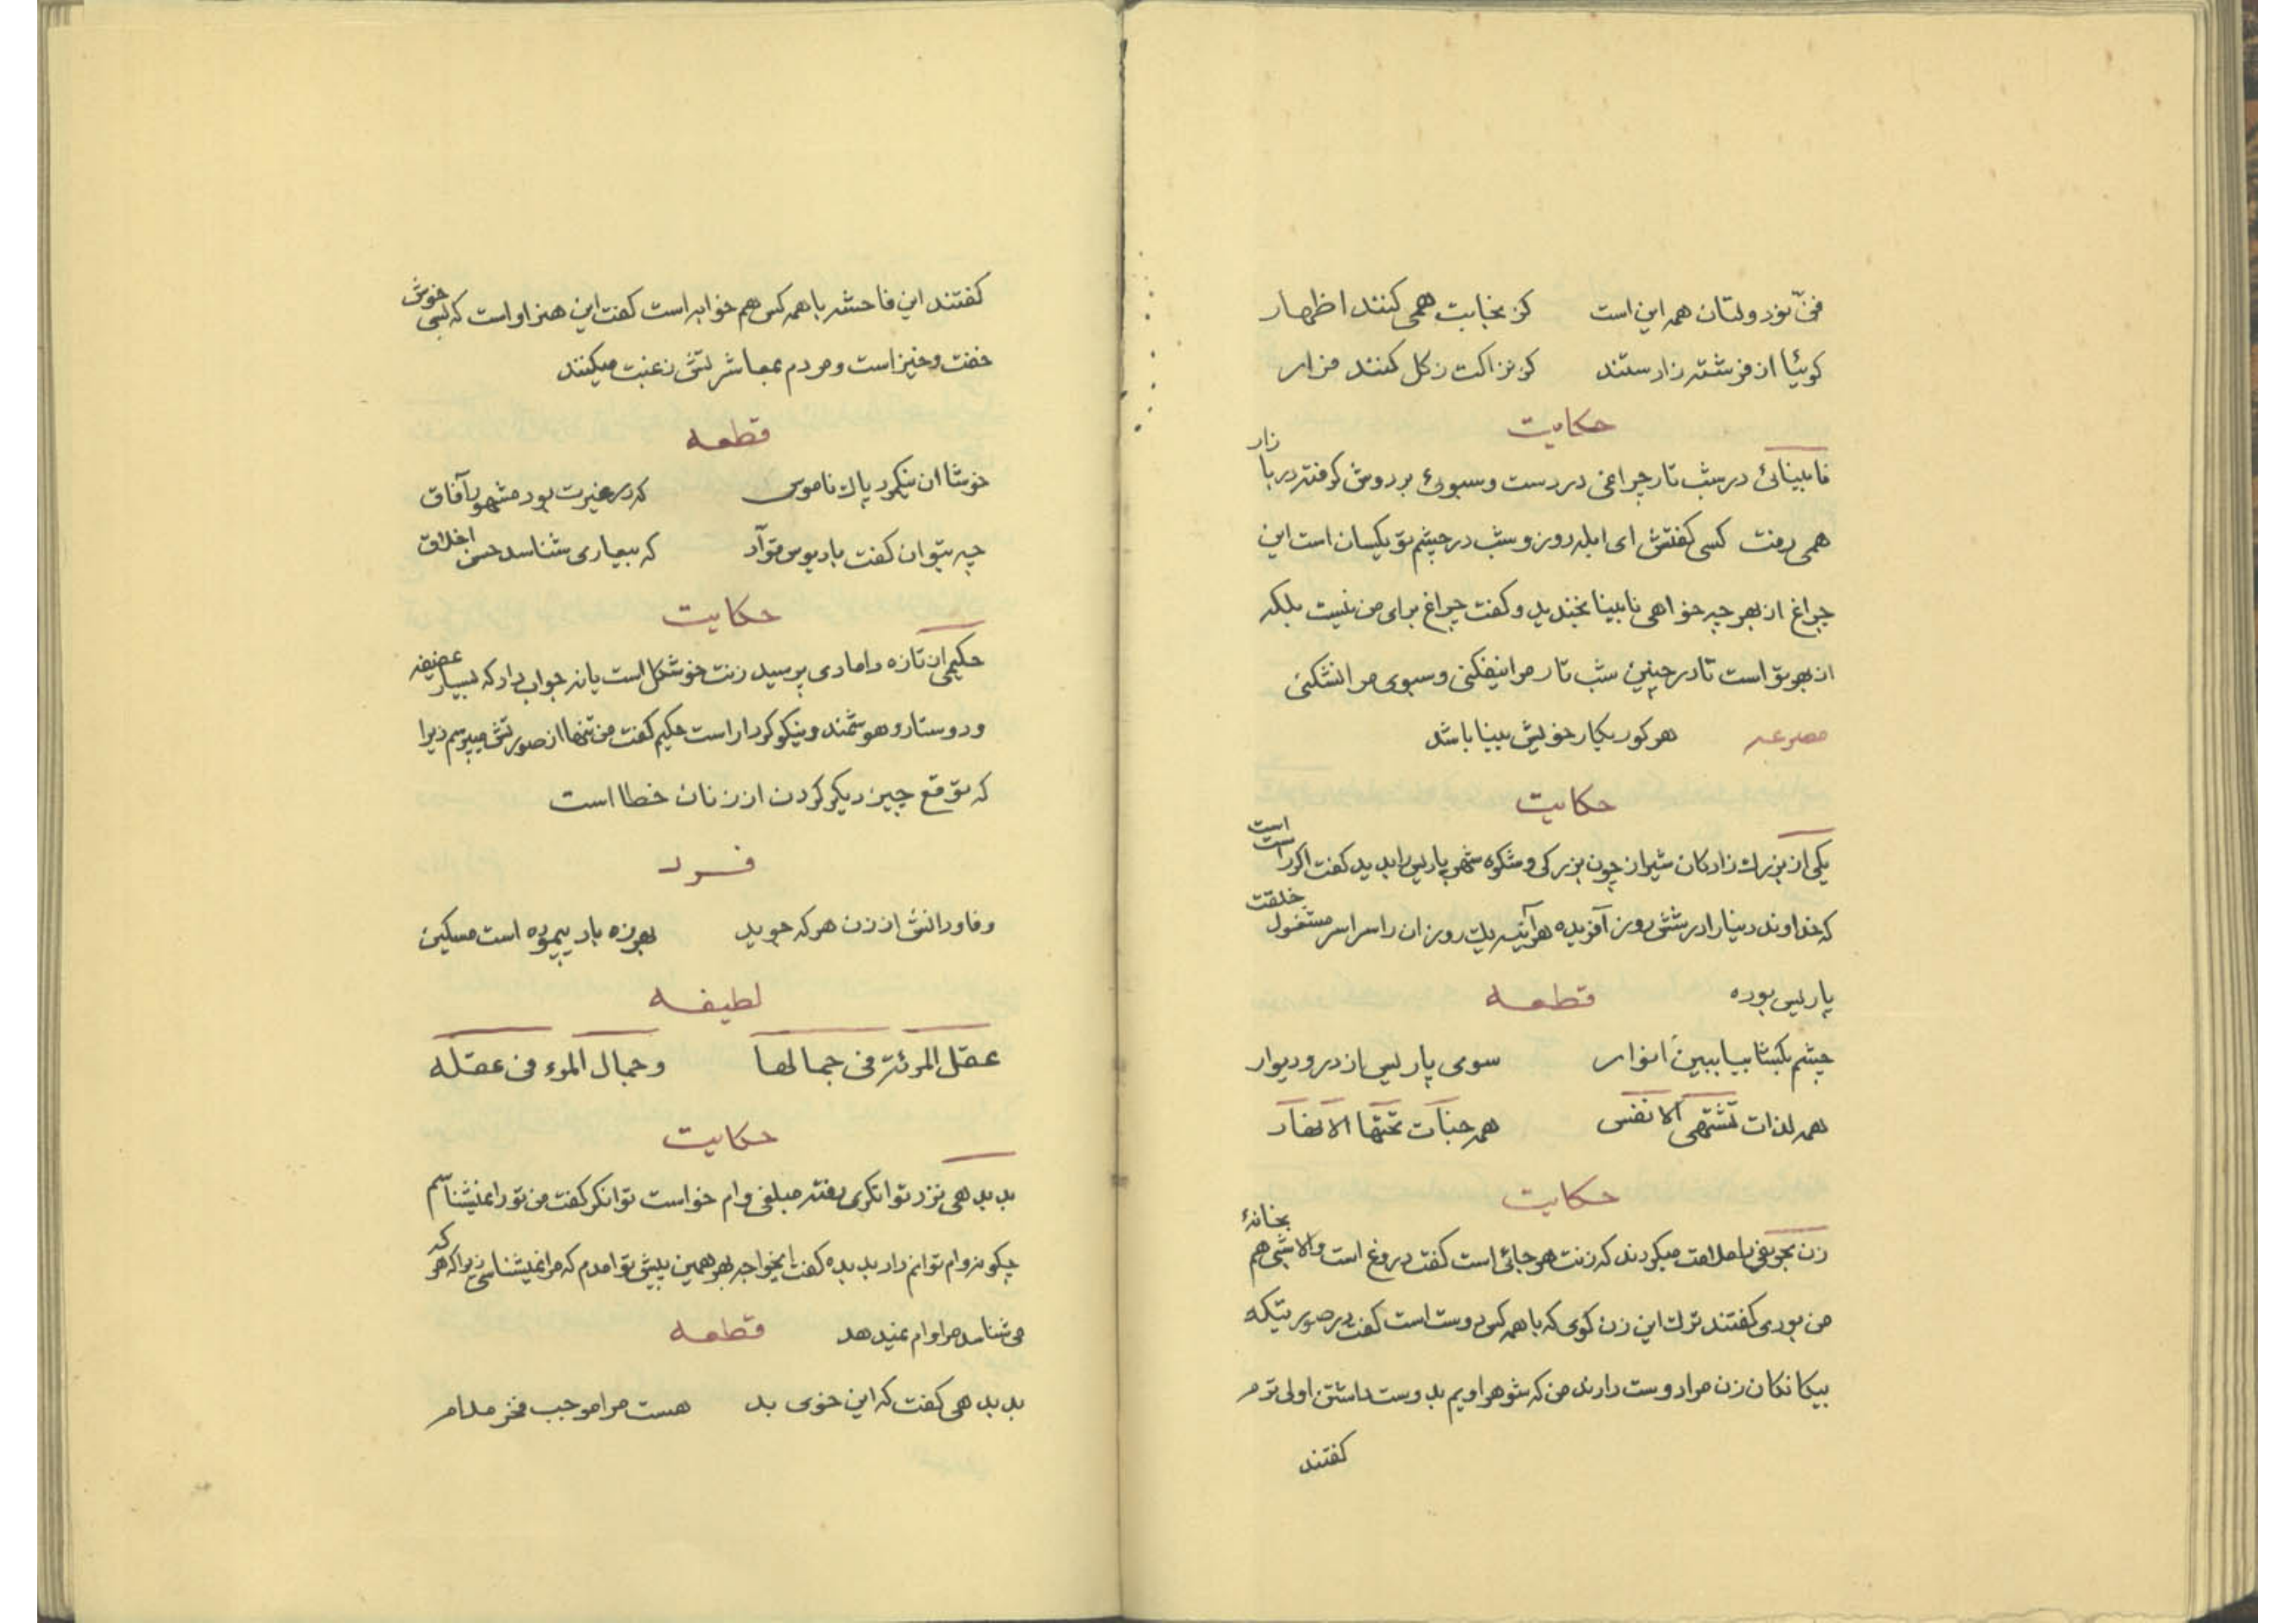 فنّ نودولتان همه این است کز نجابت همی کنند اظهار
گوئیا از فرشته زادستند کز نزاکت ز گل کنند فرار
حکایت
نابینائی در شب تار چراغی در دست و سبوئی بر دوش گرفته در بازار
همی رفت کسی گفتش ای ابله روز و شب در چشم تو یکسان است این
چراغ از بهر چه خواهی نابینا بخندید و گفت چراغ برای من نیست بلکه
از بهر تو است تا در چنین شب تار مرا نیفکنی و سبوی مرا نشکنی
مصرعه هر کور بکار خویش بینا باشد
حکایت
یکی از بزرک زادکان شیراز چون بزرکی و شکوه شهر پاریس را بدید گفت اگر راست است
که خداوند دنیا را در شش روز آفریده هر آینه یک روز از آن را سراسر مشغول خلقت
پاریس بوده قطعه
چشم بکشا بیا ببین انوار سوی پاریس از در و دیوار
همه لذات تشتهی الانفس همه جنات تحتها الانهار
حکایت
زن بجوفی را ملامت میکردند که زنت هر جائی است گفت دروغ است والا شبی هم بخانهٔ
من بودی گفتند ترک این زن کوی که با همه کس دوست است گفت در صورتیکه
بیکانکان زن مرا دوست دارند من که شوهر اویم بدوست داشتن اولی ترم
گفتند
گفتند این فاحشه با همه کس هم خوابه است گفت این هنر او است که بسی خوش
خفت و خیز است و مردم بمعاشرتش رغبت میکنند
قطعه
خوشا آن نیکمرد پاک ناموس که در غیرت بود مشهور آفاق
چه بتوان گفت با دیوس قوّاد که بیعاری شناسد حسن اخلاق
حکایت
حکیمی از تازه دامادی پرسید زنت خوشگل است یا نه جواب داد که بسیار عفیفه
و دوستار و هوشمند و نیکو کردار است حکیم گفت من تنها از صورتش میپرسم زیرا
که توقع چیز دیکر کردن از زنان خطا است
فرد
وفا و دانش از زن هر که جوید بهرزه باد پیموده است مسکین
لطیفه
عقل المرئة فی جمالها و جمال المرء فی عقله
حکایت
بد بدهی نزد توانکری رفته مبلغی وام خواست توانکر گفت من تو را نمیشناسم
چکونه وام توانم داد بد بده گفت ایخواجه بهر همین پیش تو آمدم که مرا نمیشناسی زیرا که هر که
می شناسد مرا وام نمیدهد قطعه
بد بدهی گفت که این خوی بد هست مرا موجب فخر مدام